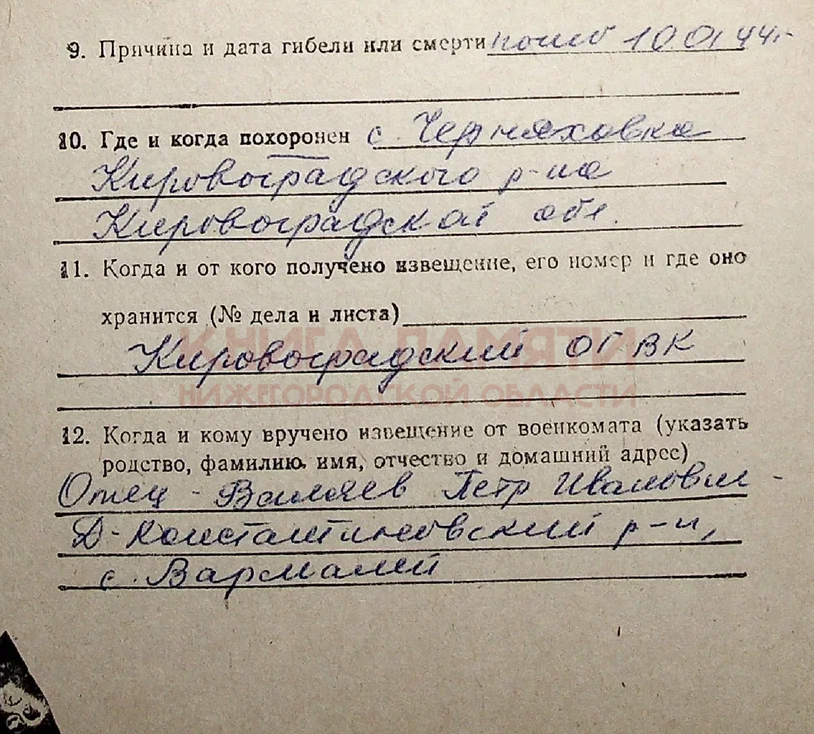 9. Причина и дата гибели или смерти погиб 10.01.44 г.
10. Где и когда похоронен с. Черняховка
Кировоградского р-на
Кировоградской обл.
11. Когда и от кого получено извещение, его номер и где оно
хранится (№ дела и листа)
КНИГА ПАМЯТИ
Кировоградский ОГВК
НИЖЕГОРОДСКОЙ ОБЛАСТИ
12. Когда и кому вручено извещение от военкомата (указать
родство, фамилию, имя, отчество и домашний адрес)
Отец - Петр Иванович -
Д-Константиновский р-н,
с. Вармалей